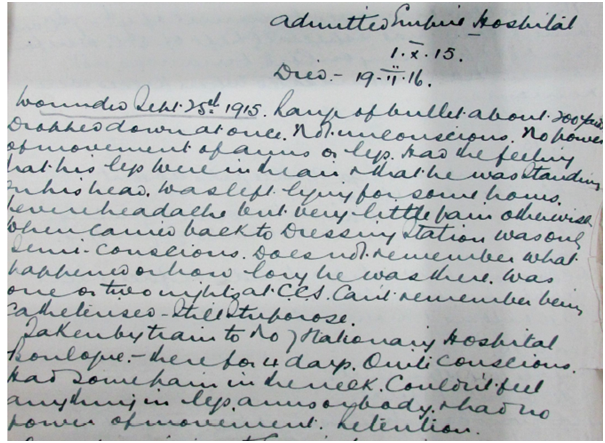 admitted Empire Hospital
1.X.15.
Died:- 19-II-16.
Wounded Sept. 25th 1915. Range of bullet about 200 yds.
Dropped down at once. Not unconscious. No power
of movement of arms or legs. Had the feeling
that his legs were in the air & that he was standing
on his head. Was left lying for some hours.
Severe headache but very little pain otherwise
When carried back to Dressing Station was only
semi-conscious. Does not remember what
happened or how long he was there. Was
one or two nights at C.C.S. Can't remember being
catheterised - still stuporose.
Taken by train to No 7 Stationary Hospital
Boulogne.- there for 4 days. Quite conscious.
Had some pain in the neck. Couldn't feel
anything in legs, arms or body, & had no
power of movement. Retention.